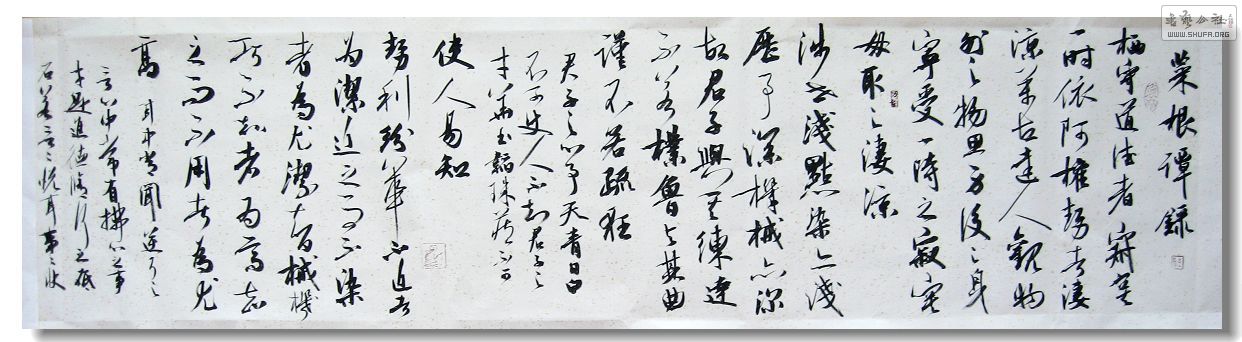 書藝公社
WWW.SHUFA.ORG
菜根譚錄
栖守道德者寂寞
一时依阿權勢者凄
凉萬古達人觀物
外之物思身後之身
寧受一時之寂寞
毋取之凄凉
涉世淺點染亦淺
歷事深機械亦深
故君子與其練達
不若樸魯與其曲
謹不若疏狂
君子之心事天青日白
不可使人不知君子之
才華玉韞珠藏不可
使人易知
勢利紛華不近者
为潔近之而不染
者為尤潔智械機
巧不知者为高知
之而不用者為尤
高 耳中常聞逆耳之
言心中常有拂心之事
才是進德修行之砥
石若言言悅耳事事快